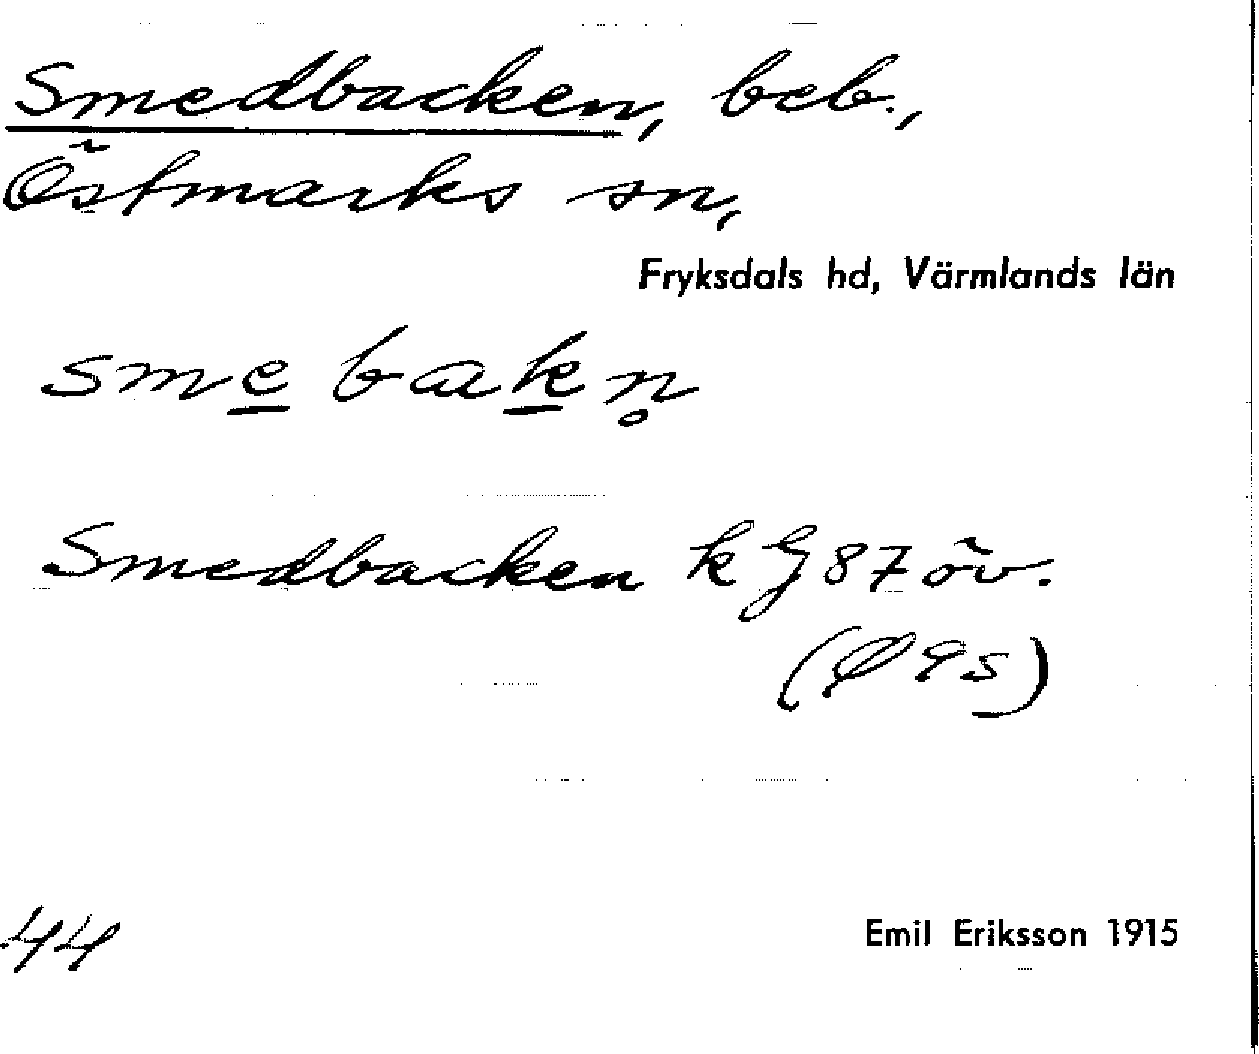 Smedbacken, beb.,
Östmarks sn,
Fryksdals hd, Värmlands län
sme̲ bak̲n̥
Smedbacken k G 87 öv.
(Ø 9 s)
44
Emil Eriksson 1915